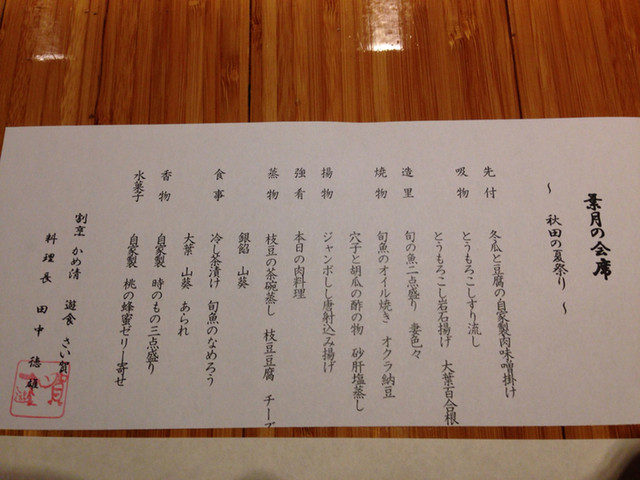 葉月の会席
～ 秋田の夏祭り ～
先付 冬瓜と豆腐の自家製肉味噌掛け
吸物 とうもろこしすり流し
とうもろこし岩石揚げ 大葉百合根
造里 旬の魚二点盛り 妻色々
焼物 旬魚のオイル焼き オクラ納豆
穴子と胡瓜の酢の物 砂肝塩蒸し
揚物 ジャンボしし唐射込み揚げ
強肴 本日の肉料理
蒸物 枝豆の茶碗蒸し 枝豆豆腐 チーズ
銀餡 山葵
食事 冷し茶漬け 旬魚のなめろう
大葉 山葵 あられ
香物 自家製 時のもの三点盛り
水菓子 自家製 桃の蜂蜜ゼリー寄せ
割烹 かめ清 遊食 さい賀
料理長 田中 徳雄